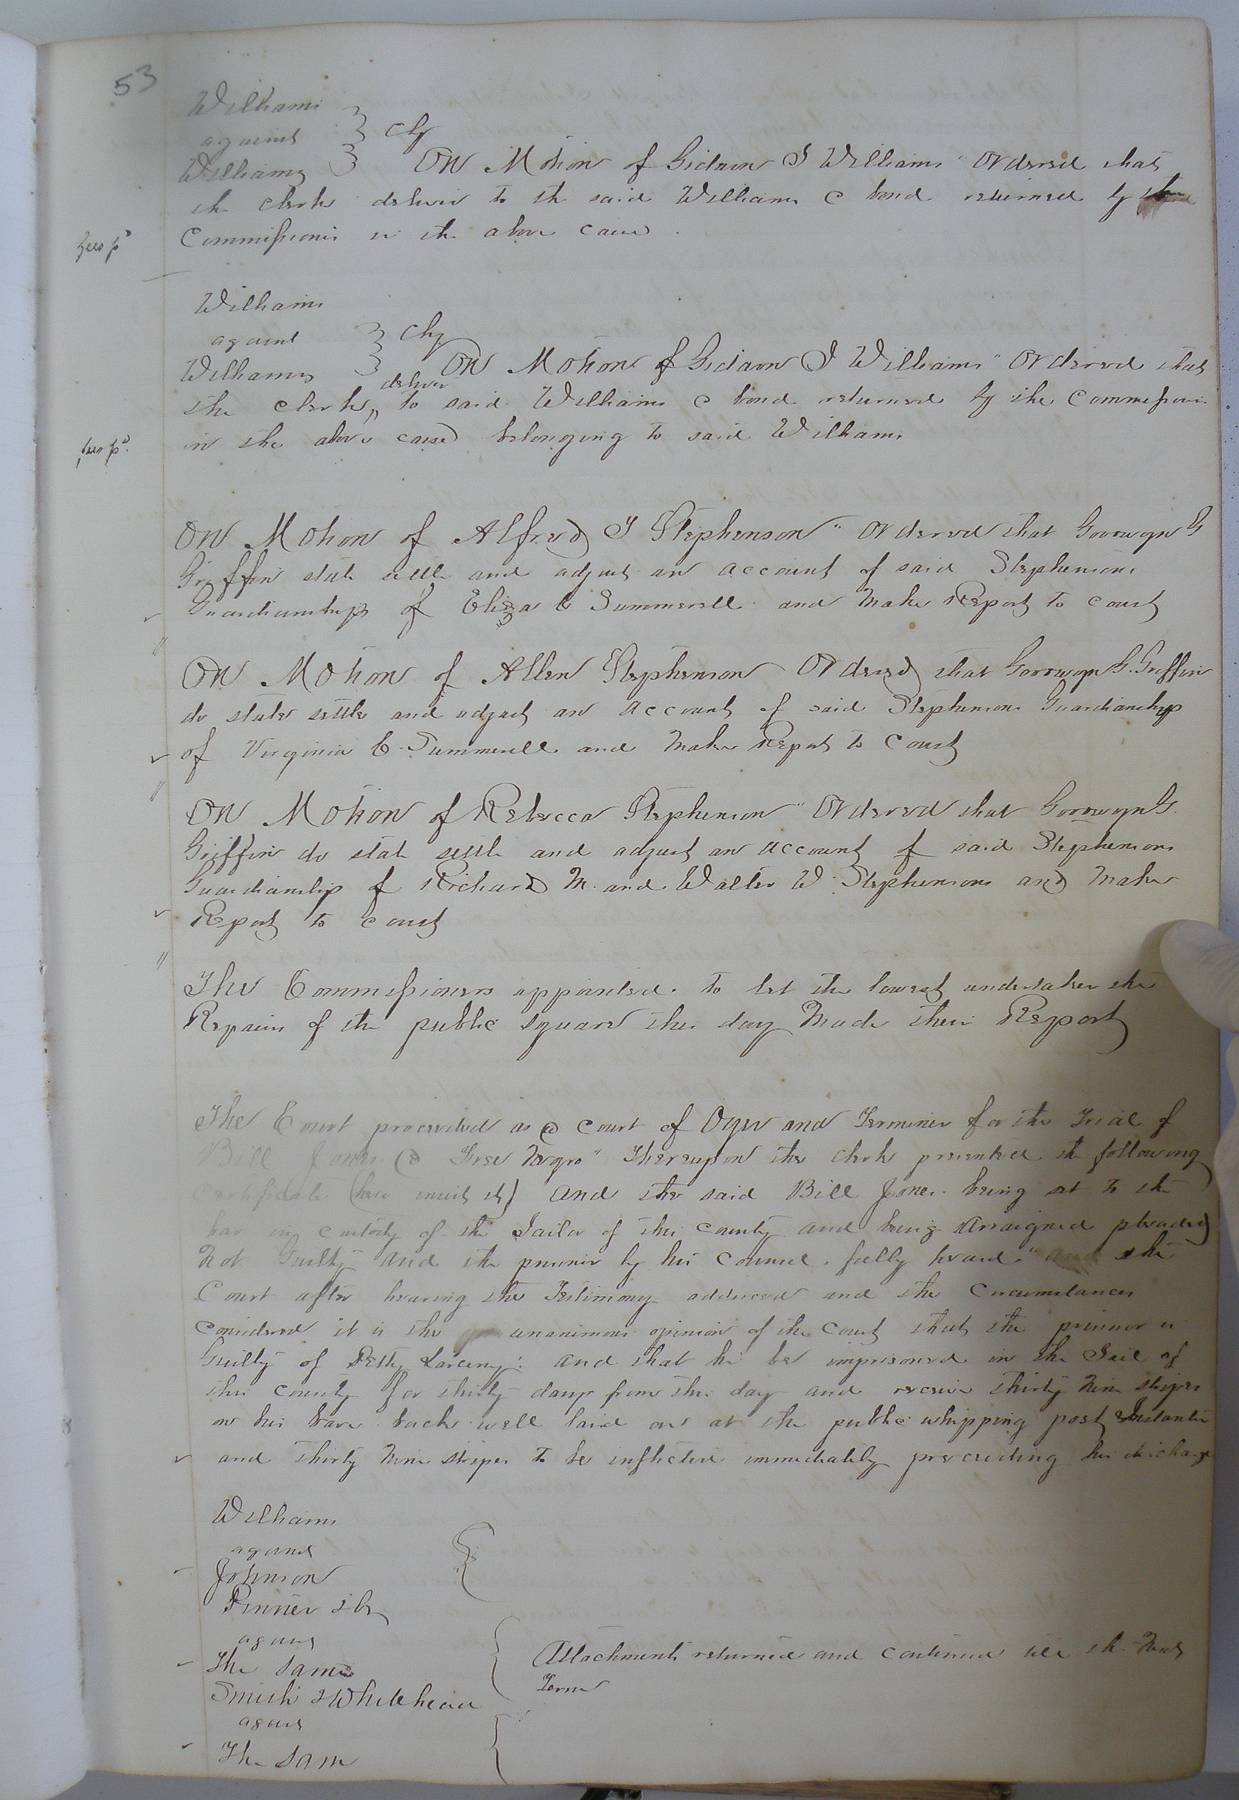 53
Williams
against } Chy
Williams } On Motion of Gideon J Williams " Ordered that
the clerk deliver to the said Williams a bond returned by the
Commissioners in the above cause.
Williams
against } Chy
Williams } On Motion of Gidaon J Williams " Ordered that
the clerk deliver to said Williams a bond returned by the Commissioner
in the above cause belonging to said Williams
On Motion of Alfred J Stephenson " Ordered that G
Griffin state settle and adjust an account of said Stephensons
Guardianship of Eliza C Summerell and Make Report to court
On Motion of Allen Stephenson Ordered that G. Griffin
do state settle and adjust an account of said Stephensons Guardianship
of Virginia C. Summerell and Make Report to Court
On Motion of Rebecca Stephenson " Ordered that G.
Griffin do state settle and adjust an account of said Stephensons
Guardianship of Richard M. and Walter W. Stephensons and Make
Report to court
The Commissioners appointed to let the lowest undertaker the
Repairs of the public square this day Made their Report
The Court proceeded as a court of Oyer and Terminer for the Trial of
Bill Jones (a Free Negro " Thereupon the clerk presented the following
Certificate (here insert it) and the said Bill Jones being set to the
bar in custody of the Jailor of this county and being Arraigned pleaded
Not Guilty and the prisoner by his Counsel fully heard " and the
Court after hearing the Testimony adduced and the Circumstances
considered it is the unanimous opinion of the court that the prisoner is
Guilty of Petty Larceny: and that he be imprisoned in the Jail of
this county for thirty days from this day and receive thirty Nine stripes
on his bare back well laid on at the public whipping post Instanter
and thirty Nine stripes to be inflicted immediately preceeding his discharge
Williams
against
Johnson
Pinner & Co
against
The Same
Attachments returned and continued till the Next
Term
Smith & Whitehead
against
The Same